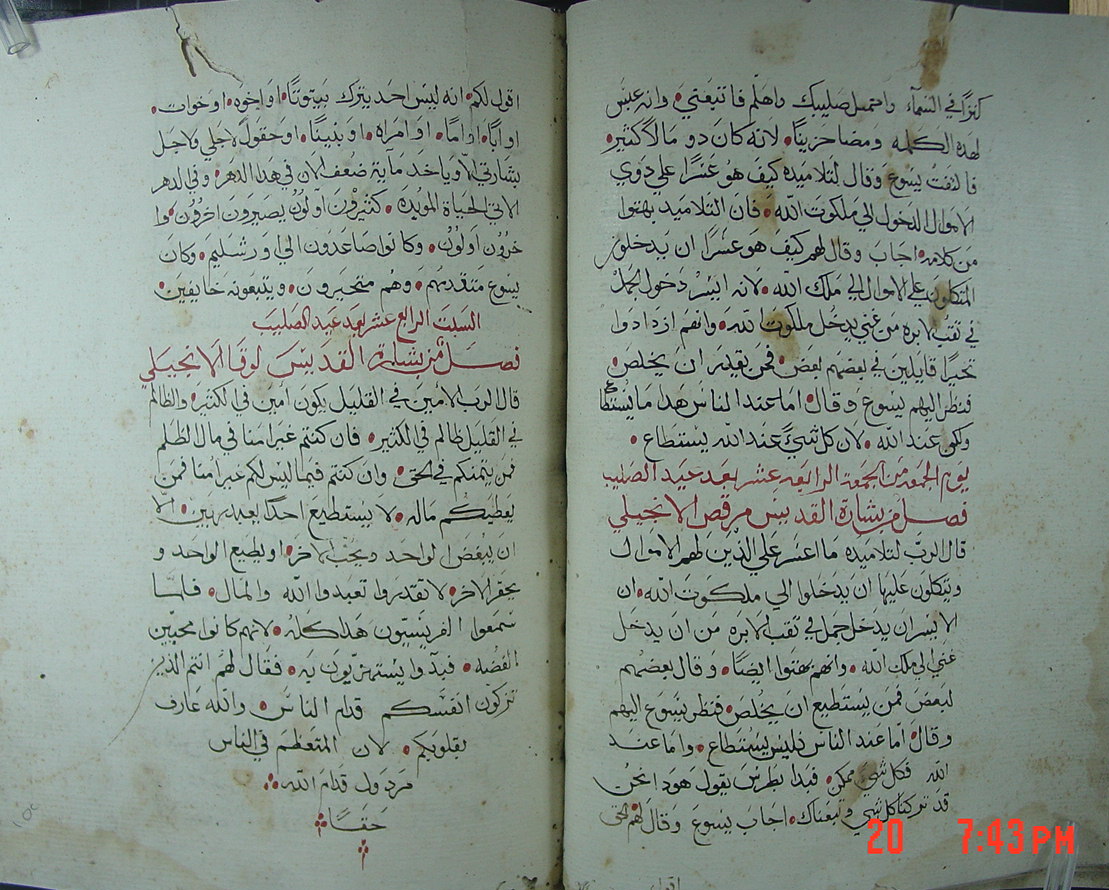 كنزًا في السماء واحتمل صليبك واهلم فاتبعني• وانه عبس
لهذه الكلمه ومضا حزينًا• لانه كان دو مالاً كثير•
فالتفت يسوع وقال لتلاميده كيف هو عسرًا علي دوي
الاموال الدخول الي ملكوت الله• فان التلاميد بهتوا
من كلامه• اجاب وقال لهم كيف هو عسرًا ان يدخلو
المتكلون علي الاموال الي ملك الله• لانه ايسر دخول الجمل
في تقب الابره من غني يدخل ملكوت الله• وانهم ازدادوا
تحيرًا قايلين في بعضهم لبعض• فمن يقدر ان يخلص•
فنظر اليهم يسوع وقال• اما عند الناس هدا ما يستطاع
ولكن عند الله• لان كل شيً عند الله يستطاع•
يوم الجمعه من الجمعه الرابعه عشر بعد عيد الصليب
فصل من بشارة القديس مرقص الانجيلي
قال الرب لتلاميده ما اعسر علي الذين لهم الاموال
ويتكلون عليها ان يدخلوا الي ملكوت الله• ان
الايسر ان يدخل جمل في تقب الابره من ان يدخل
غني الي ملك الله• وانهم بهتوا ايضًا• وقال بعضهم
لبعض فمن يستطيع ان يخلص• فنظر يسوع اليهم
وقال• اما عند الناس فليس يستطاع• واما عند
الله فكل شيً ممكن• فبدا بطرس يقول هودا نحن
قد تركنا كل شي وتبعناك• اجاب يسوع وقال لهم الحق
اقول
اقول لكم• انه ليس احد يترك بيوتًا• او اخوه• او خوات•
او ابًا• او امًا• او امراه• او بنينًا• او حقولً لاجلي ولاجل
بشارتي• الا وياخد مايه ضعف الان في هدا الدهر• وفي الدهر
الاتي الحياة المويده• كثيرون اولون يصيرون اخرون• وا
خرون اولون• وكانوا صاعدون الي اورشليم• وكان
يسوع متقدمهم• وهم متحيرون• ويتبعونه خايفين•
السبت الرابع عشر بعد عيد الصليب
فصل من بشارة القديس لوقا الانجيلي
قال الرب الامين في القليل يكون امين في الكثير• والظالم
في القليل ظالم في الكثير• فان كنتم غير امنا في مال الظلم
فمن يتمنكم في الحق• وان كنتم فيما ليس لكم غير امنا فمن
يعطيكم ماله• لا يستطيع احدًا يعبد ربين• الا
ان يبغض الواحد ويحب الاخر• او يطيع الواحد و
يحقر الاخر• لا تقدروا تعبدوا الله والمال• فلما
سمعوا الفريسيون هدا كله• لانهم كانوا محبين
الفضه• فبدوا يستهزيون به• فقال لهم انتم الذين
تزكون انفسكم قدام الناس• والله عارف
بقلوبكم• لان المتعظم في الناس
مردول قدام الله•
حقًا
20 7:43PM